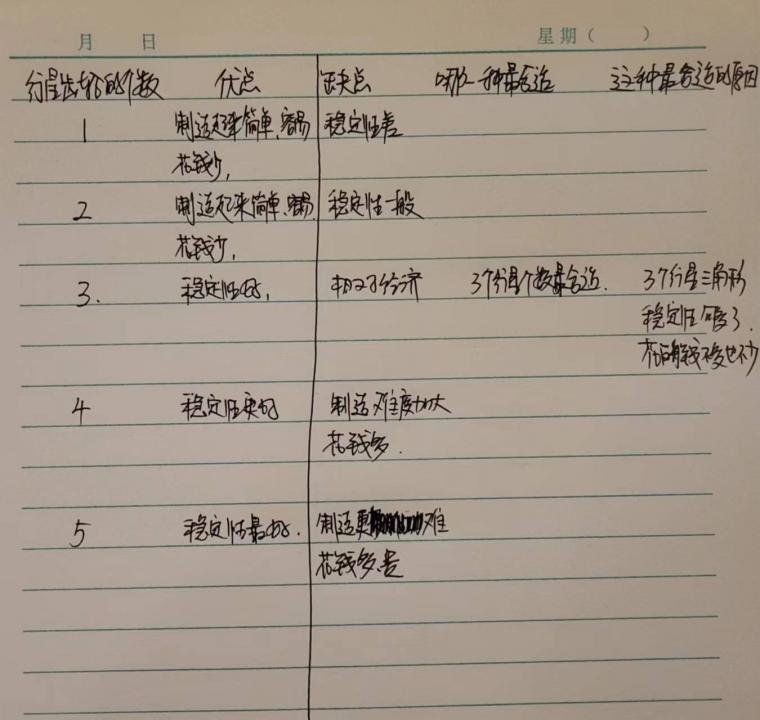 月 日 星期（ ）
行星齿轮的个数 优点 缺点 哪一种最合适 这种最合适的原因
1 制造起来简单、容易 稳定性差
花钱少，
2 制造起来简单、容易 稳定性一般
花钱少，
3. 稳定性好， 相对经济 3个行星个数最合适. 3个行星三角形
稳定性够了.
花的钱不多也不少
4 稳定性更好 制造难度加大
花钱多.
5 稳定性最好. 制造更难
花钱多.贵